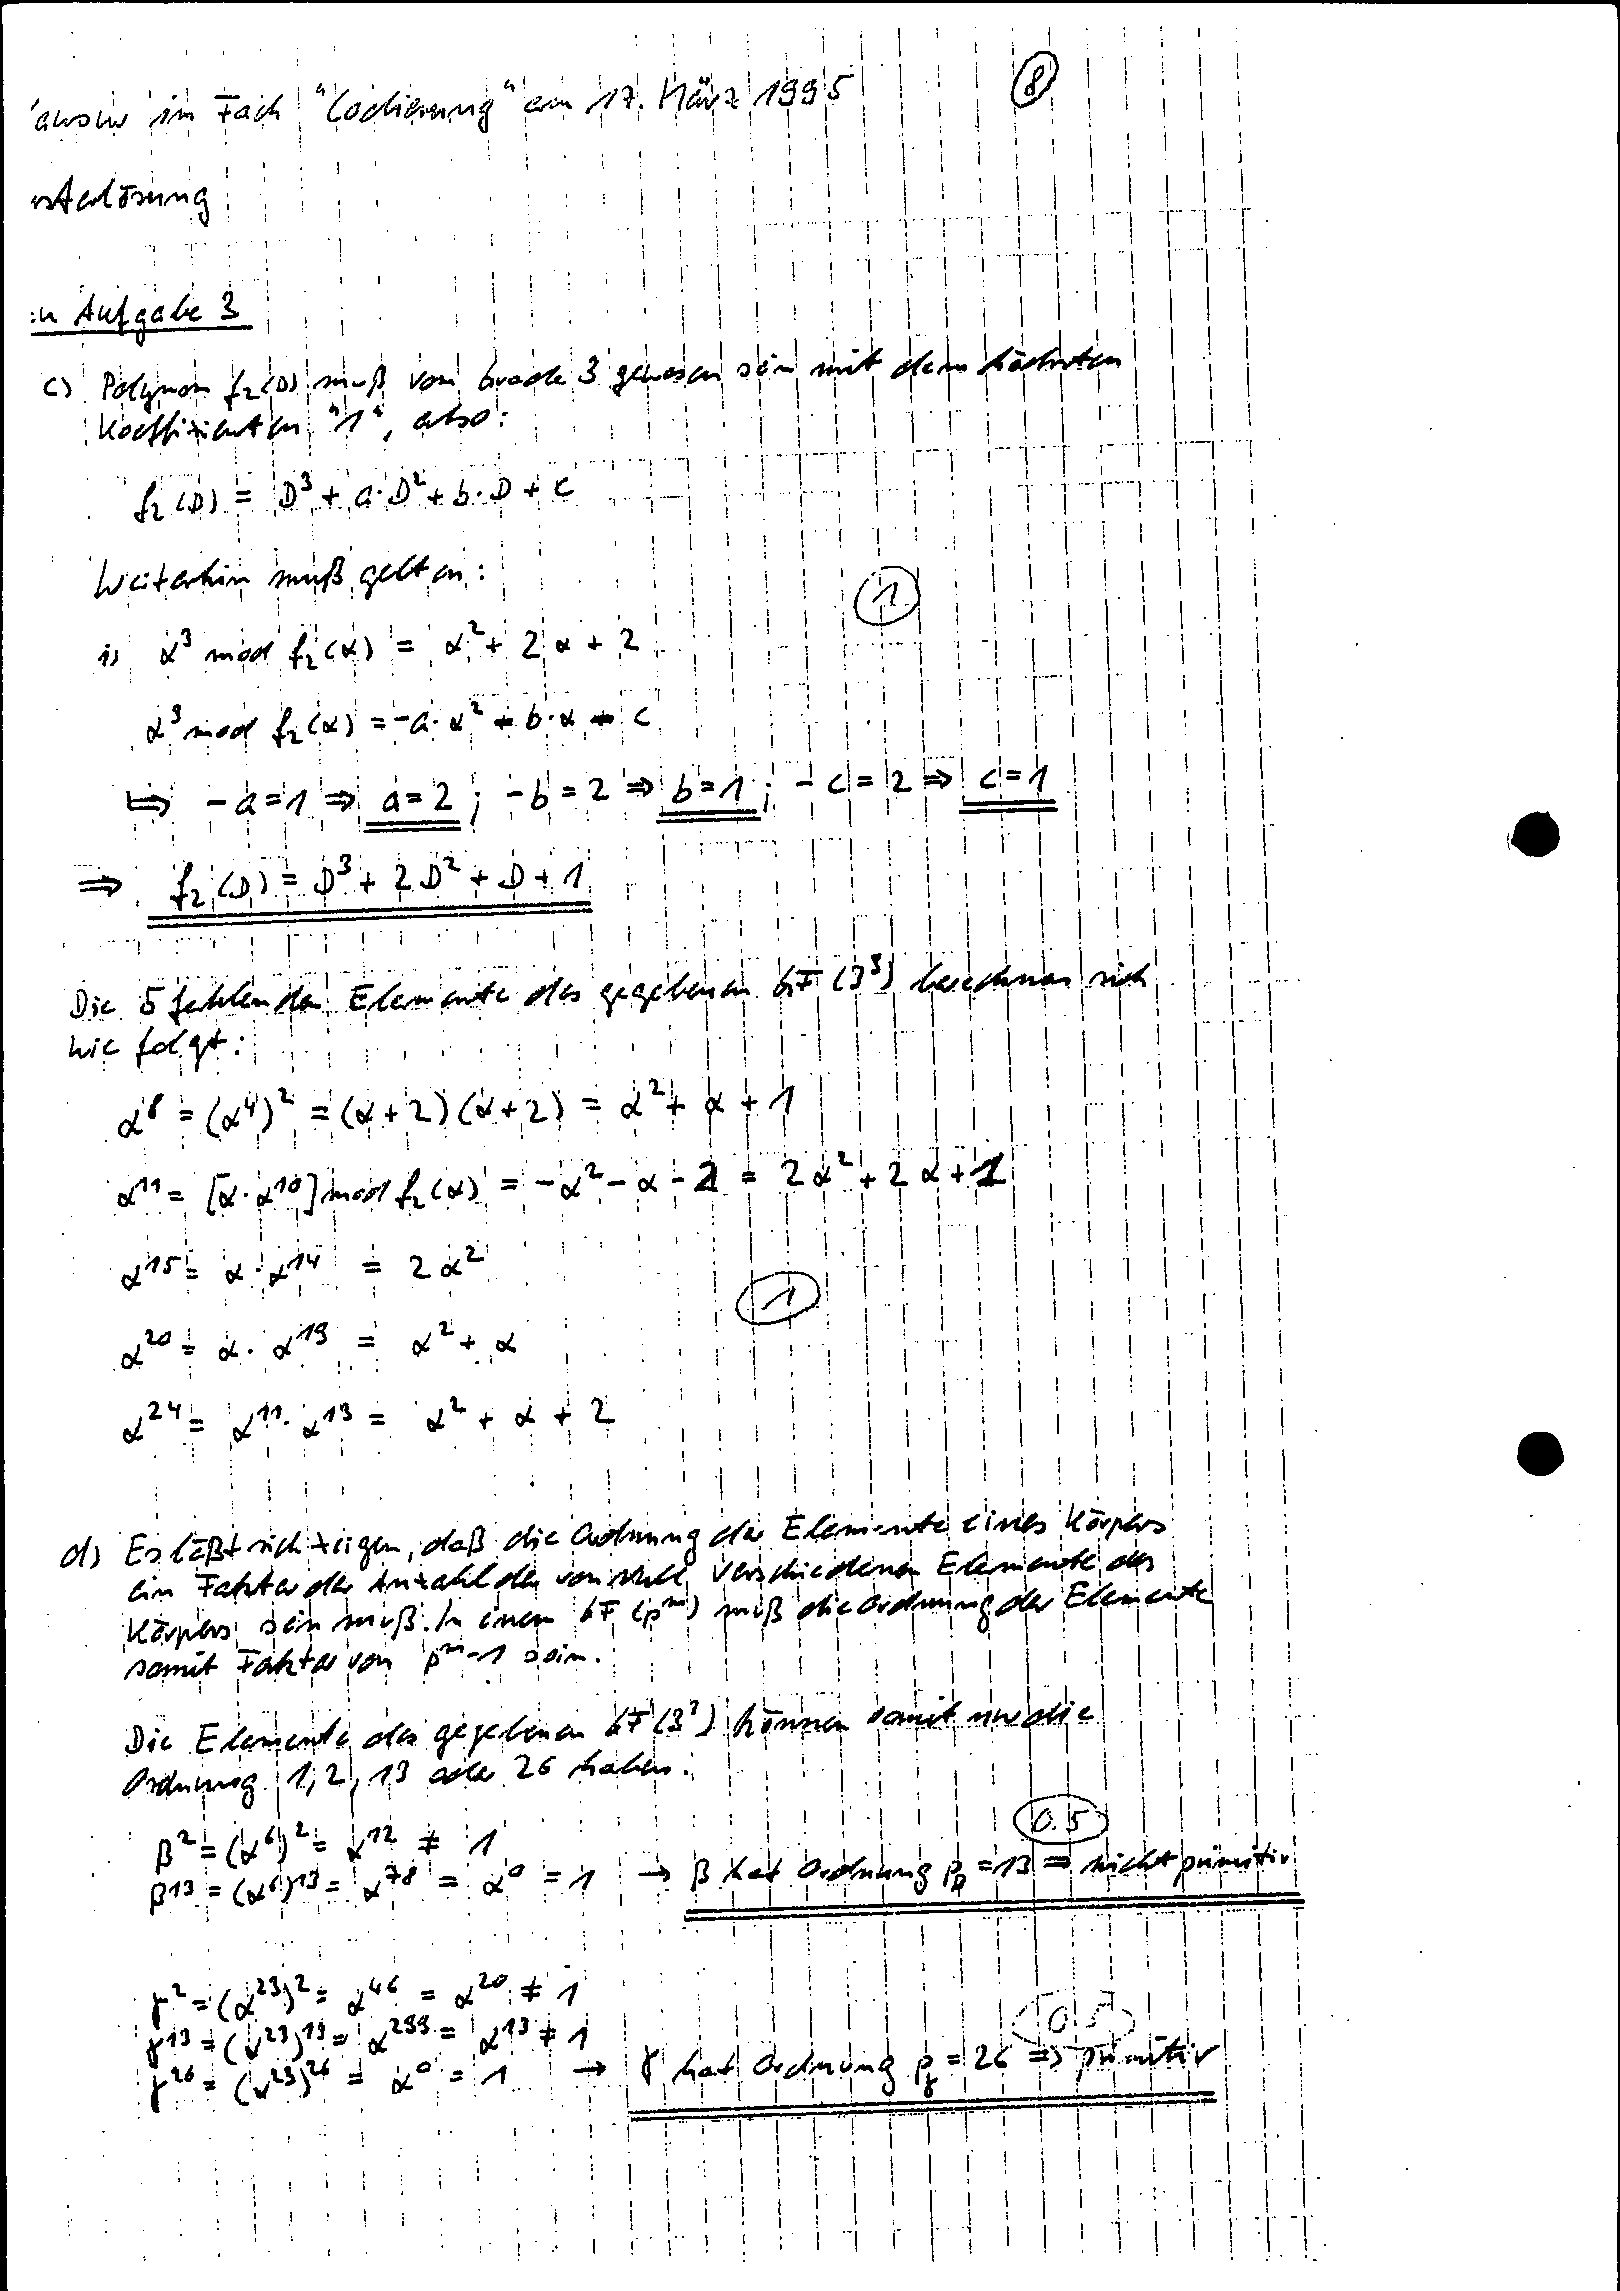 ausur im Fach "Codierung" am 17. März 1995
8
sterlösung
u Aufgabe 3
c) Polynom f₂(D) muß vom Grade 3 gewesen sein mit dem höchsten
Koeffizienten "1", also:
f₂(D) = D³ + a·D² + b·D + c
Weiterhin muß gelten:
1
i) α³ mod f₂(α) = α² + 2α + 2
α³ mod f₂(α) = -a·α² - b·α - c
⇔ -a = 1 ⇒ a = 2 ; -b = 2 ⇒ b = 1 ; -c = 2 ⇒ c = 1
⇒ f₂(D) = D³ + 2D² + D + 1
Die 5 fehlenden Elemente des gegebenen GF(3³) berechnen sich
wie folgt:
α⁸ = (α⁴)² = (α+2)(α+2) = α² + α + 1
α¹¹ = [α·α¹⁰] mod f₂(α) = -α² - α - 2 = 2α² + 2α + 1
α¹⁵ = α·α¹⁴ = 2α²
1
α²⁰ = α·α¹⁹ = α² + α
α²⁴ = α¹¹·α¹³ = α² + α + 2
d) Es läßt sich zeigen, daß die Ordnung der Elemente eines Körpers
ein Faktor der Anzahl der von Null verschiedenen Elemente des
Körpers sein muß. In einem GF(pᵐ) muß die Ordnung der Elemente
somit Faktor von pᵐ-1 sein.
Die Elemente des gegebenen GF(3³) können somit nur die
Ordnung 1, 2, 13 oder 26 haben.
0.5
β² = (α⁶)² = α¹² ≠ 1
β¹³ = (α⁶)¹³ = α⁷⁸ = α⁰ = 1 → β hat Ordnung p_β = 13 ⇒ nicht primitiv
γ² = (α²³)² = α⁴⁶ = α²⁰ ≠ 1
0.5
γ¹³ = (α²³)¹³ = α²⁹⁹ = α¹³ ≠ 1
γ²⁶ = (α²³)²⁶ = α⁰ = 1 → γ hat Ordnung p_γ = 26 ⇒ primitiv